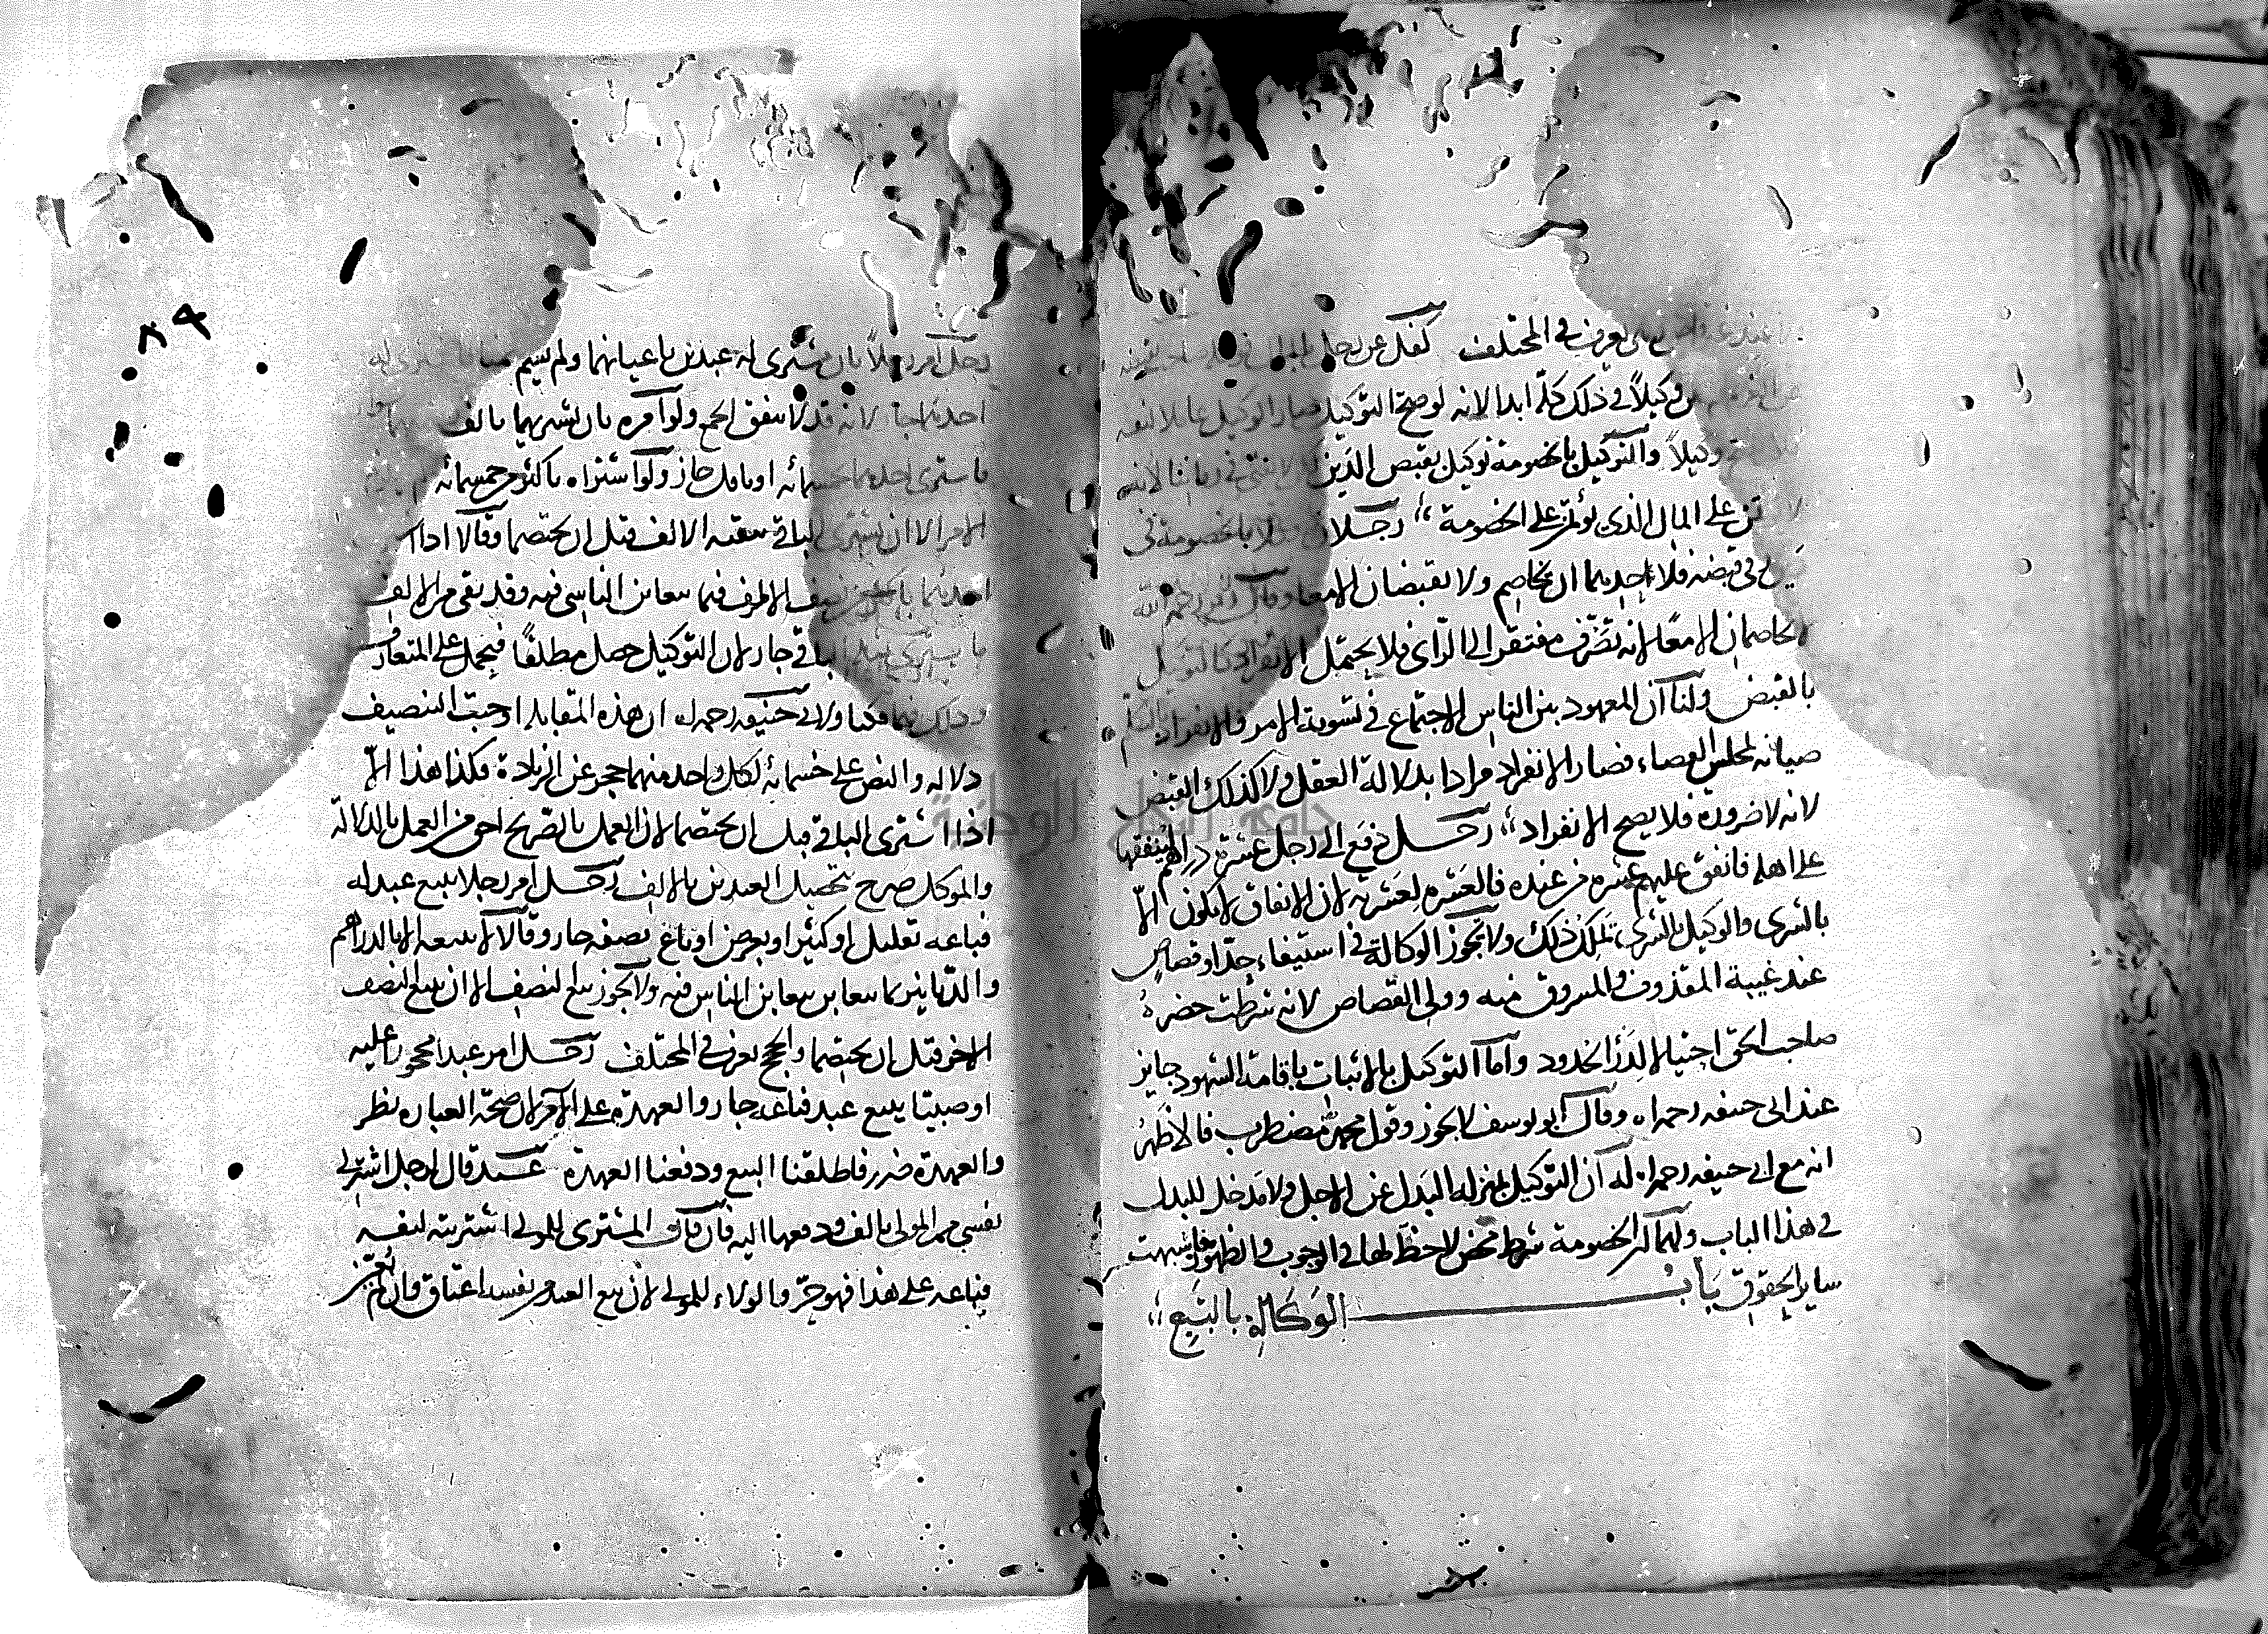 يعرف في المختلف كفل عن رجل
وكيلا في ذلك كله ابدا لانه لو صح التوكيل صار الوكيل عاملا لنفسه
وكيلا والتوكيل بالخصومة توكيل بقبض الدين
على المال الذي يؤتمن على الخصومة رجلان وكلا بالخصومة في
دين وفي قبضه فلاحدهما ان يخاصم ولا يقبضان الا معا وقال زفر رحمه الله
لا يخاصمان الا معا لانه تصرف مفتقر الى الراي فلا يحتمل الانفراد كالتوكيل
بالقبض ولنا ان المعهود بين الناس الاجتماع في تسوية الامر والانفراد بالتكلم
صيانة لمجلس القضاء فصار الانفراد مرادا بدلالة العقل ولا كذلك القبض
لانه لا ضرورة فلا يصح الانفراد رجل دفع الى رجل عشرة دراهم لينفقها
على اهله فانفق عليهم عشرة من عنده فالعشره لعشرته لان الانفاق لا يكون الا
بالشرى والوكيل بالشرى يملك ذلك ولا تجوز الوكالة في استيفاء حد او قصاص
عند غيبة المقذوف والمسروق منه وولي القصاص لانه شرطت حضرة
صاحب الحق احتيالا لدرء الحدود واما التوكيل بالاثبات باقامة الشهود جايز
عند ابي حنيفه رحمه الله وقال ابو يوسف لا يجوز وقول محمد مضطرب فالاظهر
انه مع ابي حنيفه رحمه الله له ان التوكيل بمنزله البدل عن الاصل ولا مدخل للبدل
في هذا الباب ولهما ان الخصومة شرط محض لا حظ لها في الوجوب والظهور فاشبهت
ساير الحقوق باب الوكالة بالبيع
رجل امر رجلا بان يشترى له عبدين باعيانهما ولم يسم
احدهما جاز لانه قد لا يتفق الجمع ولو امره بان يشتريهما بالف
فاشترى احدهما بخمسمائه او باقل جاز ولو اشتراه باكثر من خمسمائه
الامر الا ان يشترى الباقي ببقية الالف قبل ان يختصما وقالا اذا
احدهما باكثر من نصف الالف فيما يتغابن الناس فيه وقد بقي من الالف
ما يشترى بمثله الباقي جاز لان التوكيل حصل مطلقا فيحمل على المتعارف
وذلك فيما قلنا ولابي حنيفه رحمه الله ان هذه المقابله اوجبت التنصيف
دلاله والنص على خمسمائه لكل واحد منهما حجر عن الزيادة فكذا هذا الا
اذا اشترى الباقي قبل ان يختصما لان العمل بالصريح احق من العمل بالدلالة
والموكل صرح بتحصيل العبدين بالالف رجل امر رجلا ببيع عبد له
فباعه بقليل او كثير او بعرض او باع نصفه جاز وقالا لا يبيعه الا بالدراهم
والدنانير بما يتغابن الناس فيه ولا يجوز بيع النصف الا ان يبيع النصف
الاخر قبل ان يختصما والحجج تعرف في المختلف رجل امر عبدا محجورا عليه
او صبيا ببيع عبد فباعه جاز والعهدة على الآمر لان صحة العباره نظر
والعهدة ضرر فاطلقنا البيع ودفعنا العهدة عبد قال لرجل اشتر لي
نفسي من المولى بالف ودفعها اليه فان قال المشترى للمولى اشتريته لنفسه
فباعه على هذا فهو حر والولاء للمولى لان بيع العبد من نفسه اعتاق وان لم